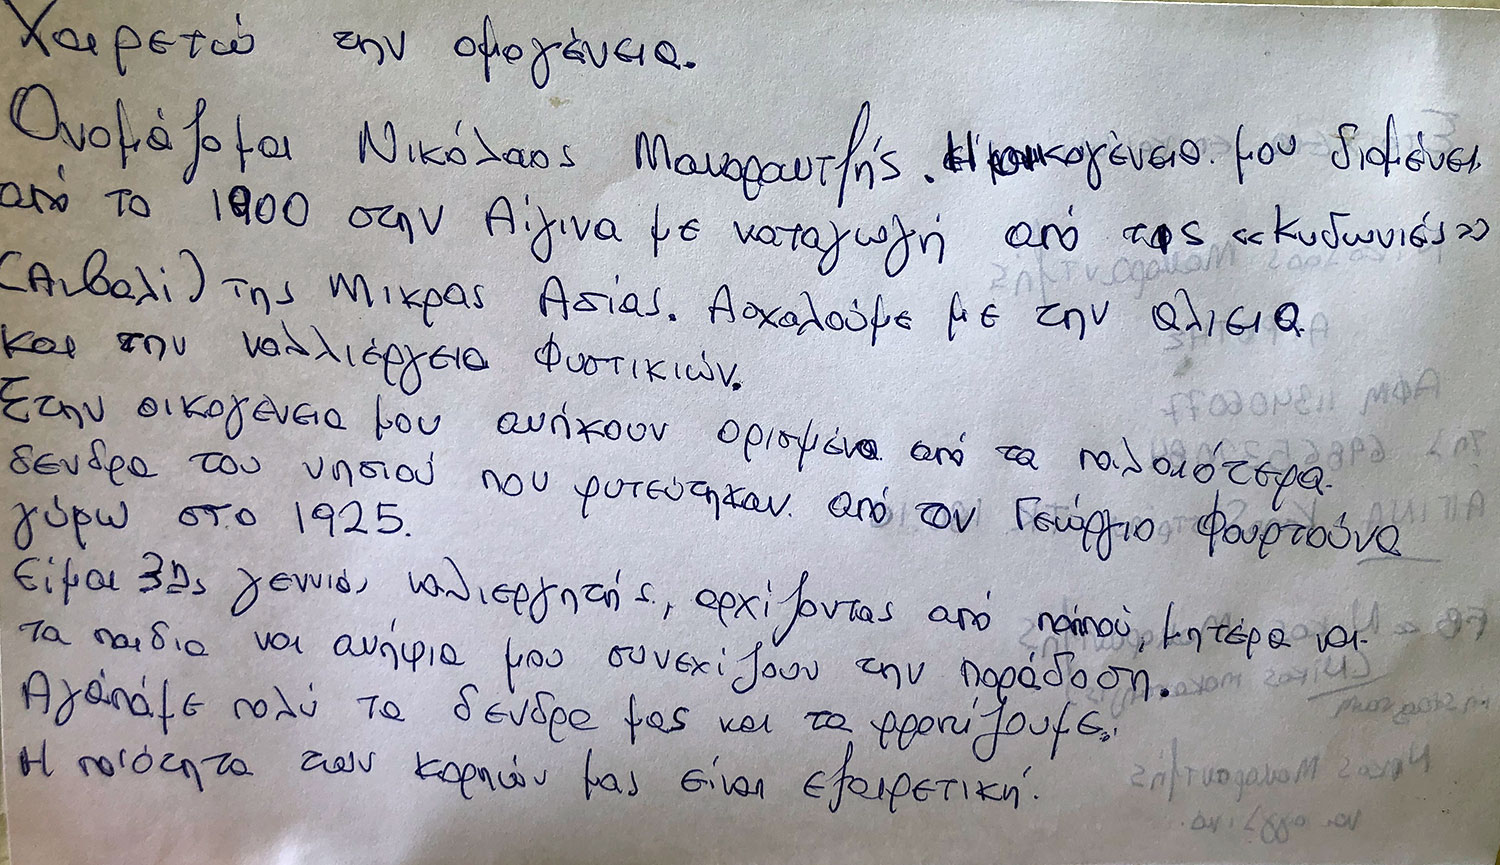 Χαιρετώ την ομογένεια.
Ονομάζομαι Νικόλαος Μακαραντζής. Η οικογένεια μου διαμένει
από το 1900 στην Αίγινα με καταγωγή από τις «Κυδωνιές»
(Αιβαλί) της Μικρας Ασίας. Ασχαλούμε με την αλιεια
και την καλλιέργεια Φυστικιών.
Στην οικογένεια μου ανήκουν ορισμένα από τα παλαιότερα
δενδρα του νησιού που φυτεύτηκαν από τον Γεώργιο Φουρτούνα
γύρω στο 1925.
Είμαι 3ης γεννιάς καλιεργητής, αρχίζοντας από παππού, μητέρα και
τα παιδια και ανήψια μου συνεχίζουν την παράδοση.
Αγαπάμε πολύ τα δενδρα μας και τα φροντίζουμε.
Η ποιότητα των καρπών μας είναι εξαιρετική.